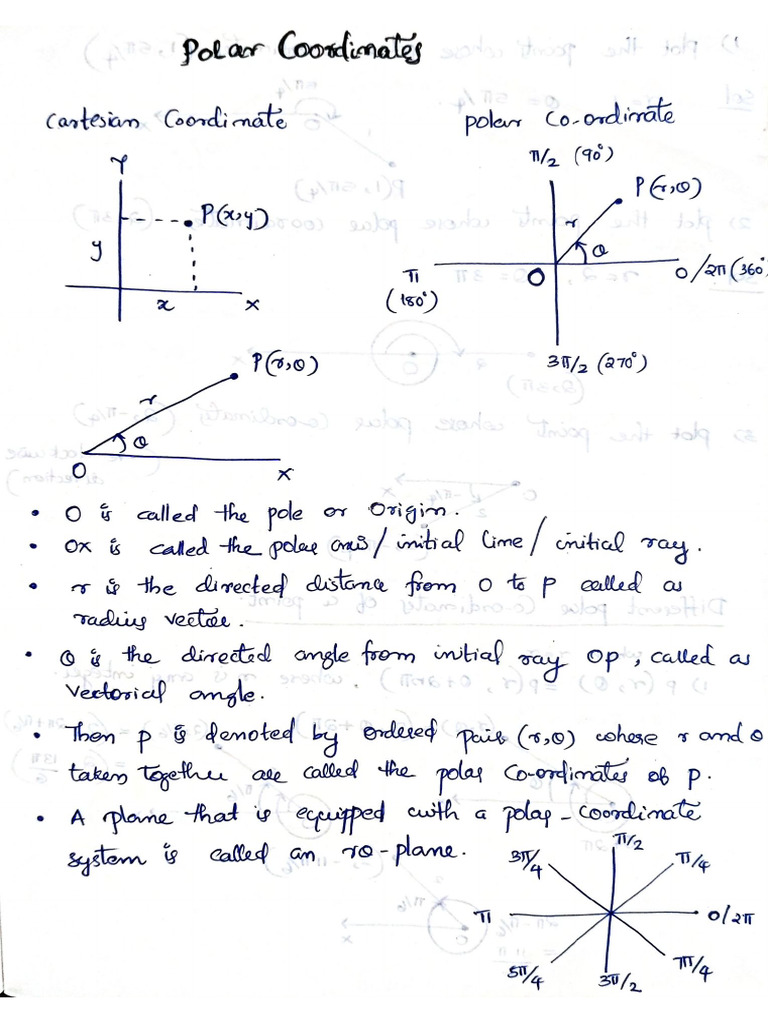 Polar Coordinates
Cartesian Coordinate
polar Co-ordinate
π/2 (90°)
Y
P(x,y)
y
x
X
P(r,θ)
r
θ
π
(180°)
O
0/2π (360°
3π/2 (270°)
P(r,θ)
r
θ
O
X
• O is called the pole or origin.
• OX is called the polar axis/ initial line/ initial ray.
• r is the directed distance from O to P called as
radius vector.
• θ is the directed angle from initial ray OP, called as
Vectorial angle.
• Then P is denoted by ordered pair (r,θ) where r and θ
taken together are called the polar Co-ordinates of P.
• A plane that is equipped with a polar-coordinate
system is called an rθ-plane.
π/2
3π/4
π/4
π
0/2π
5π/4
3π/2
7π/4